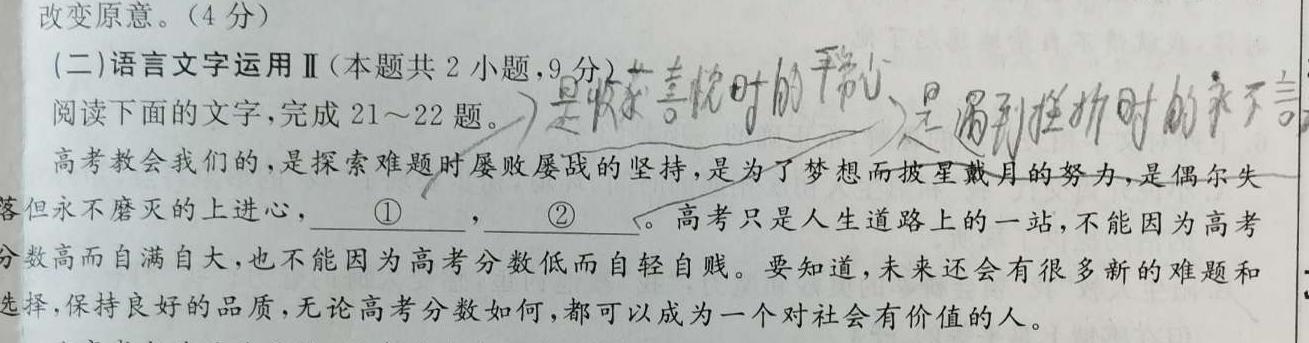 改变原意。(4分)
(二)语言文字运用Ⅱ(本题共2小题,9分)
是收获喜悦时的平常心
是遇到挫折时的永不言
阅读下面的文字,完成21～22题。
高考教会我们的,是探索难题时屡败屡战的坚持,是为了梦想而披星戴月的努力,是偶尔失
落但永不磨灭的上进心,①,②。高考只是人生道路上的一站,不能因为高考
分数高而自满自大,也不能因为高考分数低而自轻自贱。要知道,未来还会有很多新的难题和
选择,保持良好的品质,无论高考分数如何,都可以成为一个对社会有价值的人。